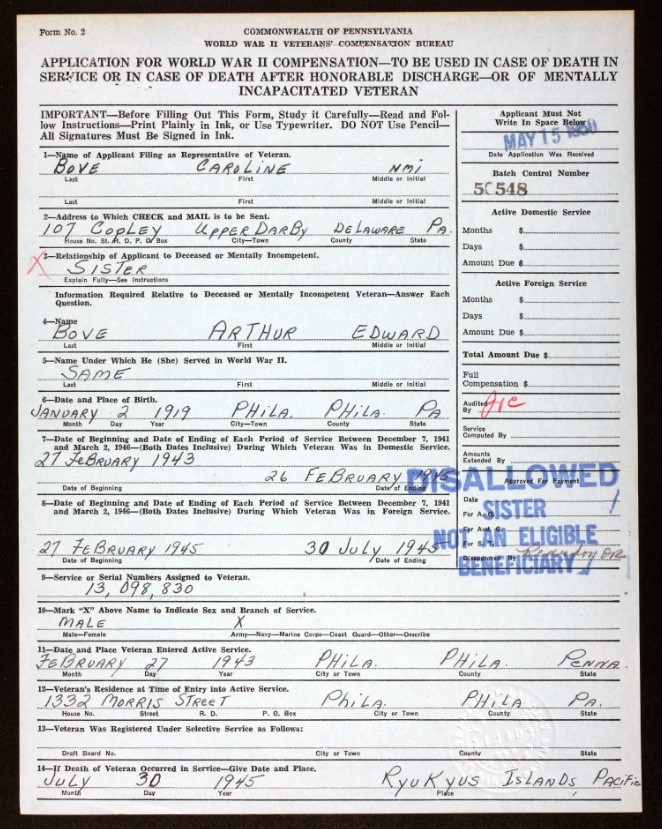 Form No. 2
COMMONWEALTH OF PENNSYLVANIA
WORLD WAR II VETERANS' COMPENSATION BUREAU
APPLICATION FOR WORLD WAR II COMPENSATION—TO BE USED IN CASE OF DEATH IN
SERVICE OR IN CASE OF DEATH AFTER HONORABLE DISCHARGE—OR OF MENTALLY
INCAPACITATED VETERAN
IMPORTANT—Before Filling Out This Form, Study it Carefully—Read and Fol-
low Instructions—Print Plainly in Ink, or Use Typewriter. DO NOT Use Pencil—
All Signatures Must Be Signed in Ink.
1—Name of Applicant Filing as Representative of Veteran.
BOVE CAROLINE NMI
Last First Middle or Initial
Last First Middle or Initial
2—Address to Which CHECK and MAIL is to be Sent.
107 COPLEY UPPER DARBY DELAWARE PA.
House No. St. R. D. P. O. Box City—Town County State
3—Relationship of Applicant to Deceased or Mentally Incompetent.
X SISTER
Explain Fully—See Instructions
Information Required Relative to Deceased or Mentally Incompetent Veteran—Answer Each
Question.
4—Name
BOVE ARTHUR EDWARD
Last First Middle or Initial
5—Name Under Which He (She) Served in World War II.
SAME
Last First Middle or Initial
6—Date and Place of Birth.
JANUARY 2 1919 PHILA. PHILA. PA
Month Day Year City—Town County State
7—Date of Beginning and Date of Ending of Each Period of Service Between December 7, 1941
and March 2, 1946—(Both Dates Inclusive) During Which Veteran Was in Domestic Service.
27 FEBRUARY 1943
26 FEBRUARY 1945
Date of Beginning Date of Ending
8—Date of Beginning and Date of Ending of Each Period of Service Between December 7, 1941
and March 2, 1946—(Both Dates Inclusive) During Which Veteran Was in Foreign Service.
27 FEBRUARY 1945 30 JULY 1945
Date of Beginning Date of Ending
9—Service or Serial Numbers Assigned to Veteran.
13,098,830
10—Mark "X" Above Name to Indicate Sex and Branch of Service.
MALE X
Male—Female Army—Navy—Marine Corps—Coast Guard—Other—Describe
11—Date and Place Veteran Entered Active Service.
FEBRUARY 27 1943 PHILA. PHILA. PENNA.
Month Day Year City or Town County State
12—Veteran's Residence at Time of Entry into Active Service.
1332 MORRIS STREET PHILA. PHILA PA.
House No. Street R. D. P. O. Box City or Town County State
13—Veteran Was Registered Under Selective Service as Follows:
Draft Board No. City or Town County State
14—If Death of Veteran Occurred in Service—Give Date and Place.
JULY 30 1945 RYUKYUS ISLANDS, PACIFIC
Month Day Year Place
Applicant Must Not
Write In Space Below
MAY 15 1950
Date Application Was Received
Batch Control Number
50548
Active Domestic Service
Months $
Days $
Amount Due $
Active Foreign Service
Months $
Days $
Amount Due $
Total Amount Due $
Full
Compensation $
Audited
By
Service
Computed By
Amounts
Extended By
Approved For Payment
Date
For A. G.
For Aud. G.
For S. T.
Disapproved By
DISALLOWED
SISTER
NOT AN ELIGIBLE
BENEFICIARY